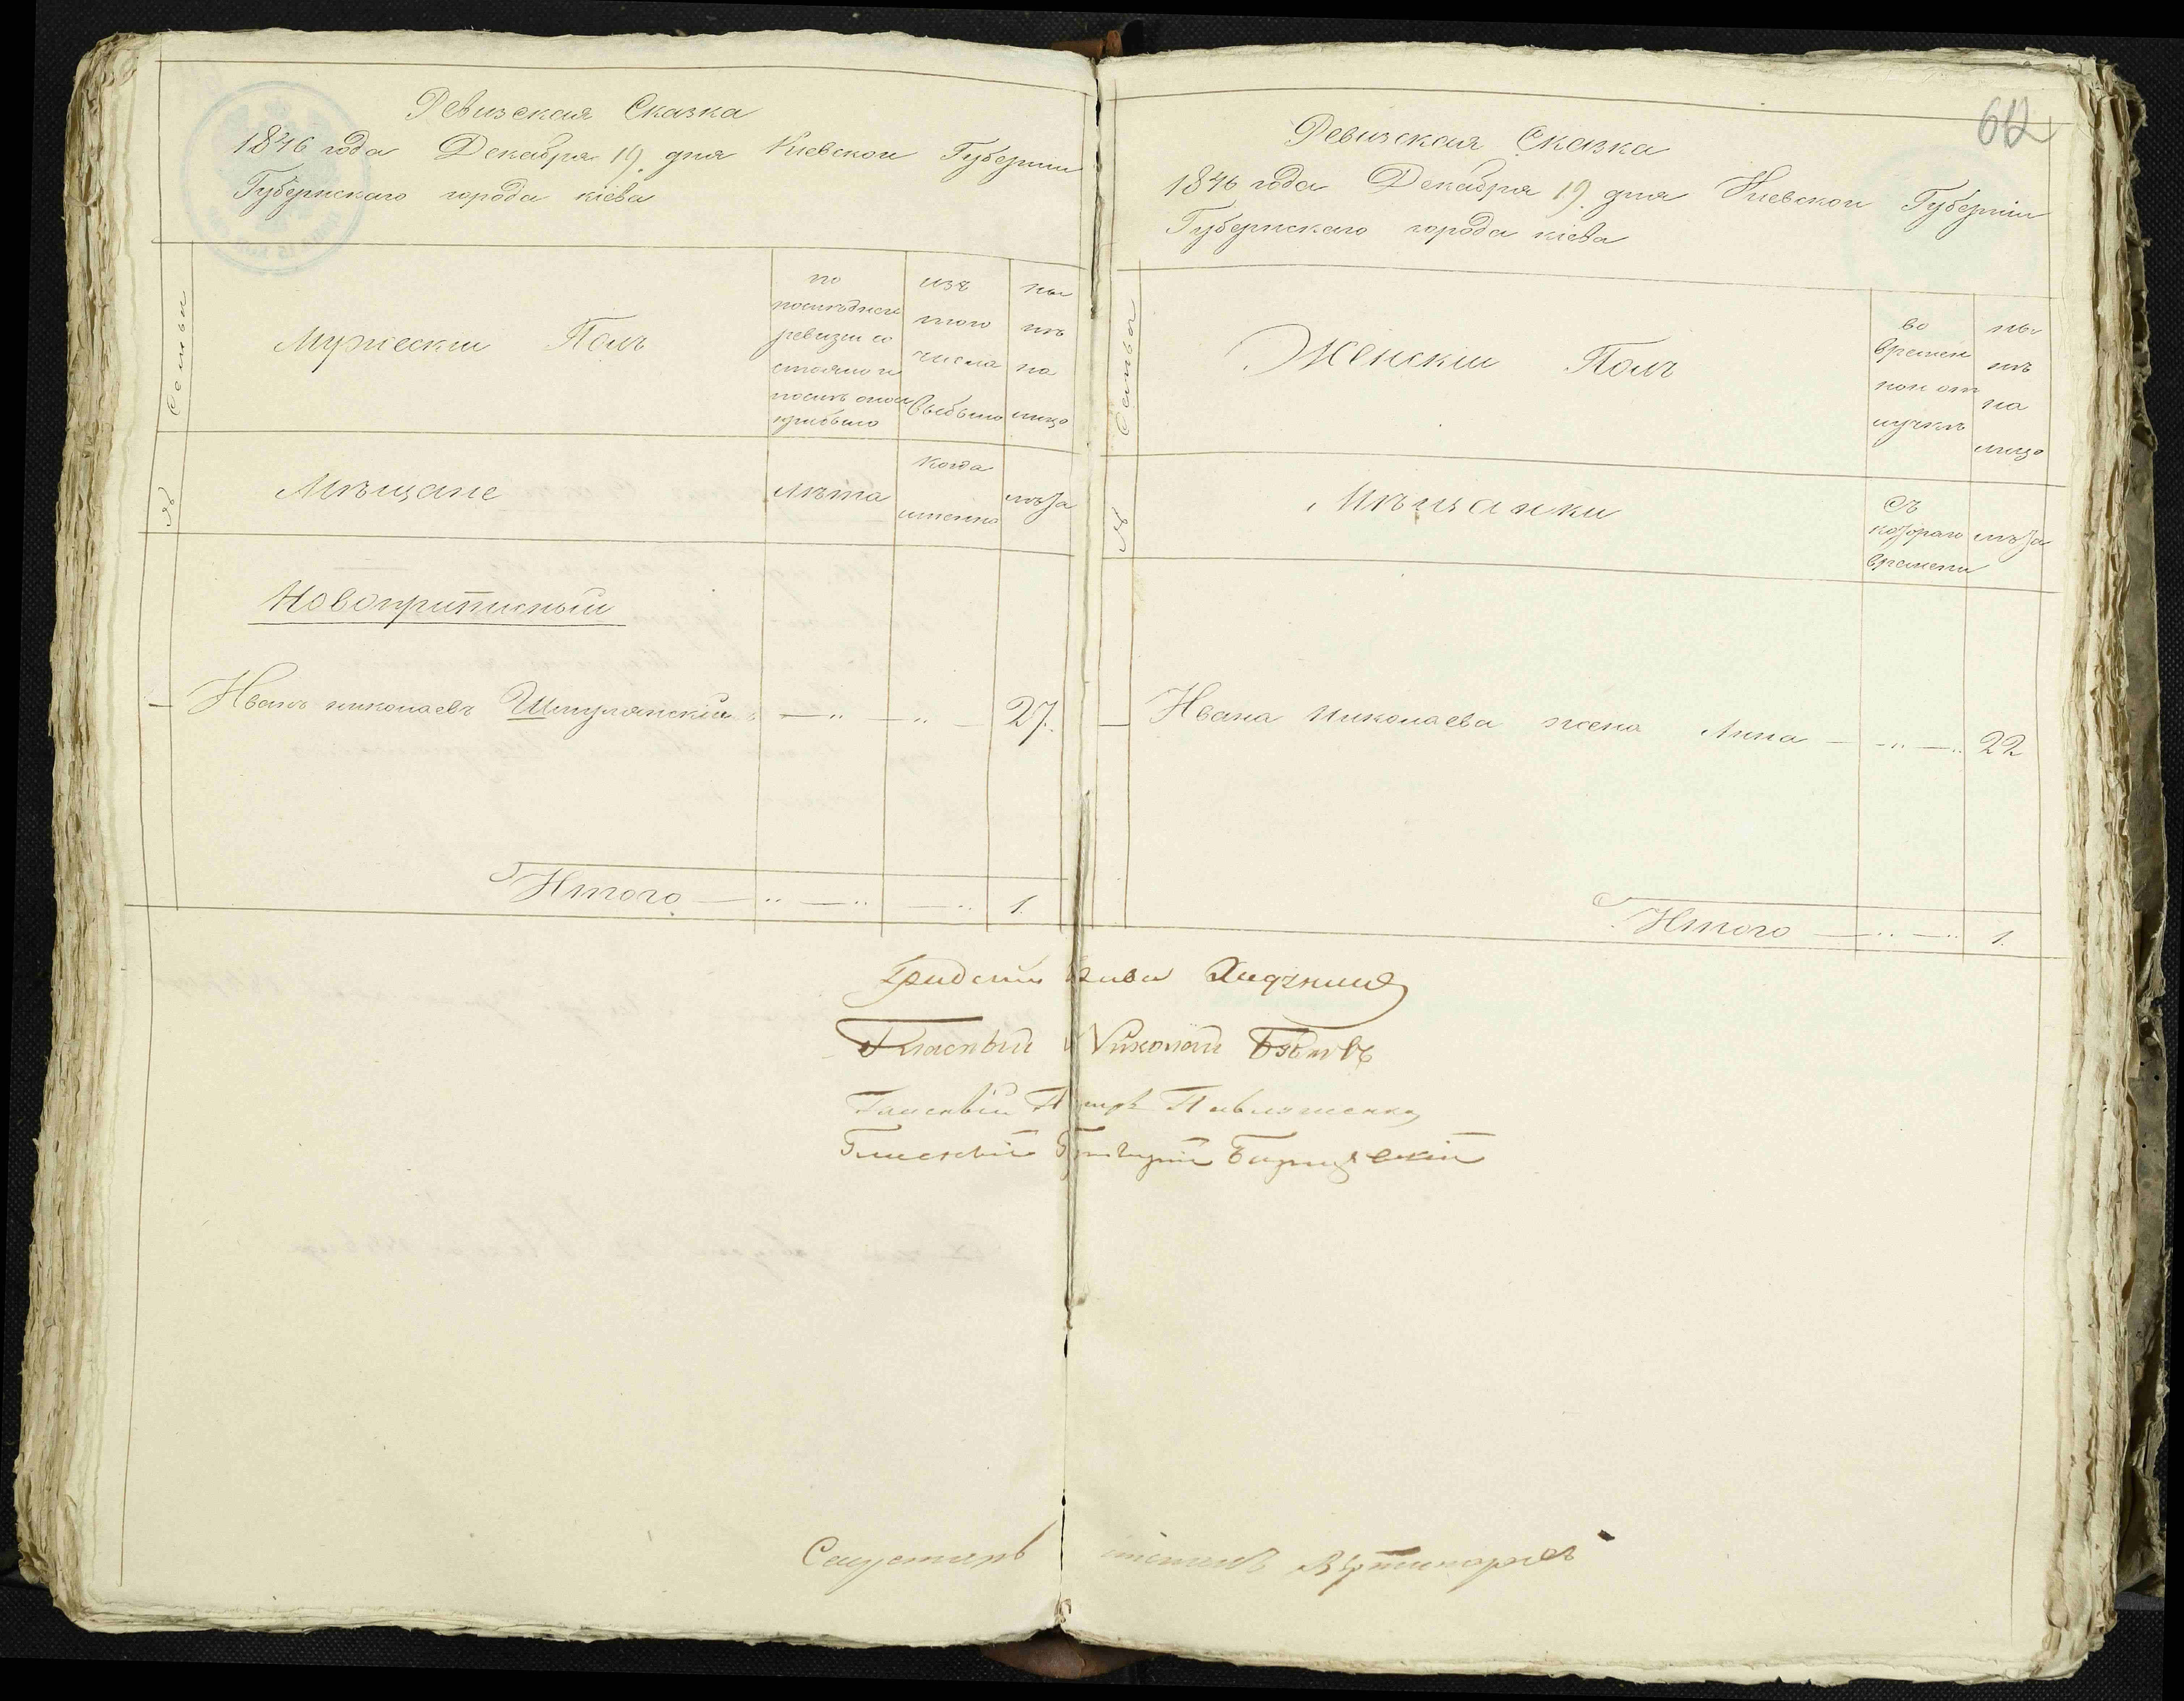 Ревизская Сказка
1846 года Декабря 19 дня Киевской Губернии
Губернскаго города кіева
Семьи
Мужескій Полъ
по
последней
ревизіи со
стояло и
после оной
прибыло
изъ
того
числа
выбыло
ны
нѣ
на
лицо
№
Мѣщане
Лѣта
когда
именно
лѣта
Новоприписный
Иванъ николаевъ Шмулянскій — " — " — 27.
Итого — " — " — " 1.
612
Ревизская Сказка
1846 года Декабря 19 дня Киевской Губерніи
Губернскаго города кіева
Семьи
Женскій Полъ
во
времен
ной от
лучкѣ
ны
нѣ
на
лицо
№
Мѣщанки
съ
котораго
времени
лѣта
Ивана Николаева жена Анна — " — " 22
Итого — " — " 1.
Градскій Глава
Гласный Николай
Гласный Петръ Павложенко
Гласный Григорій